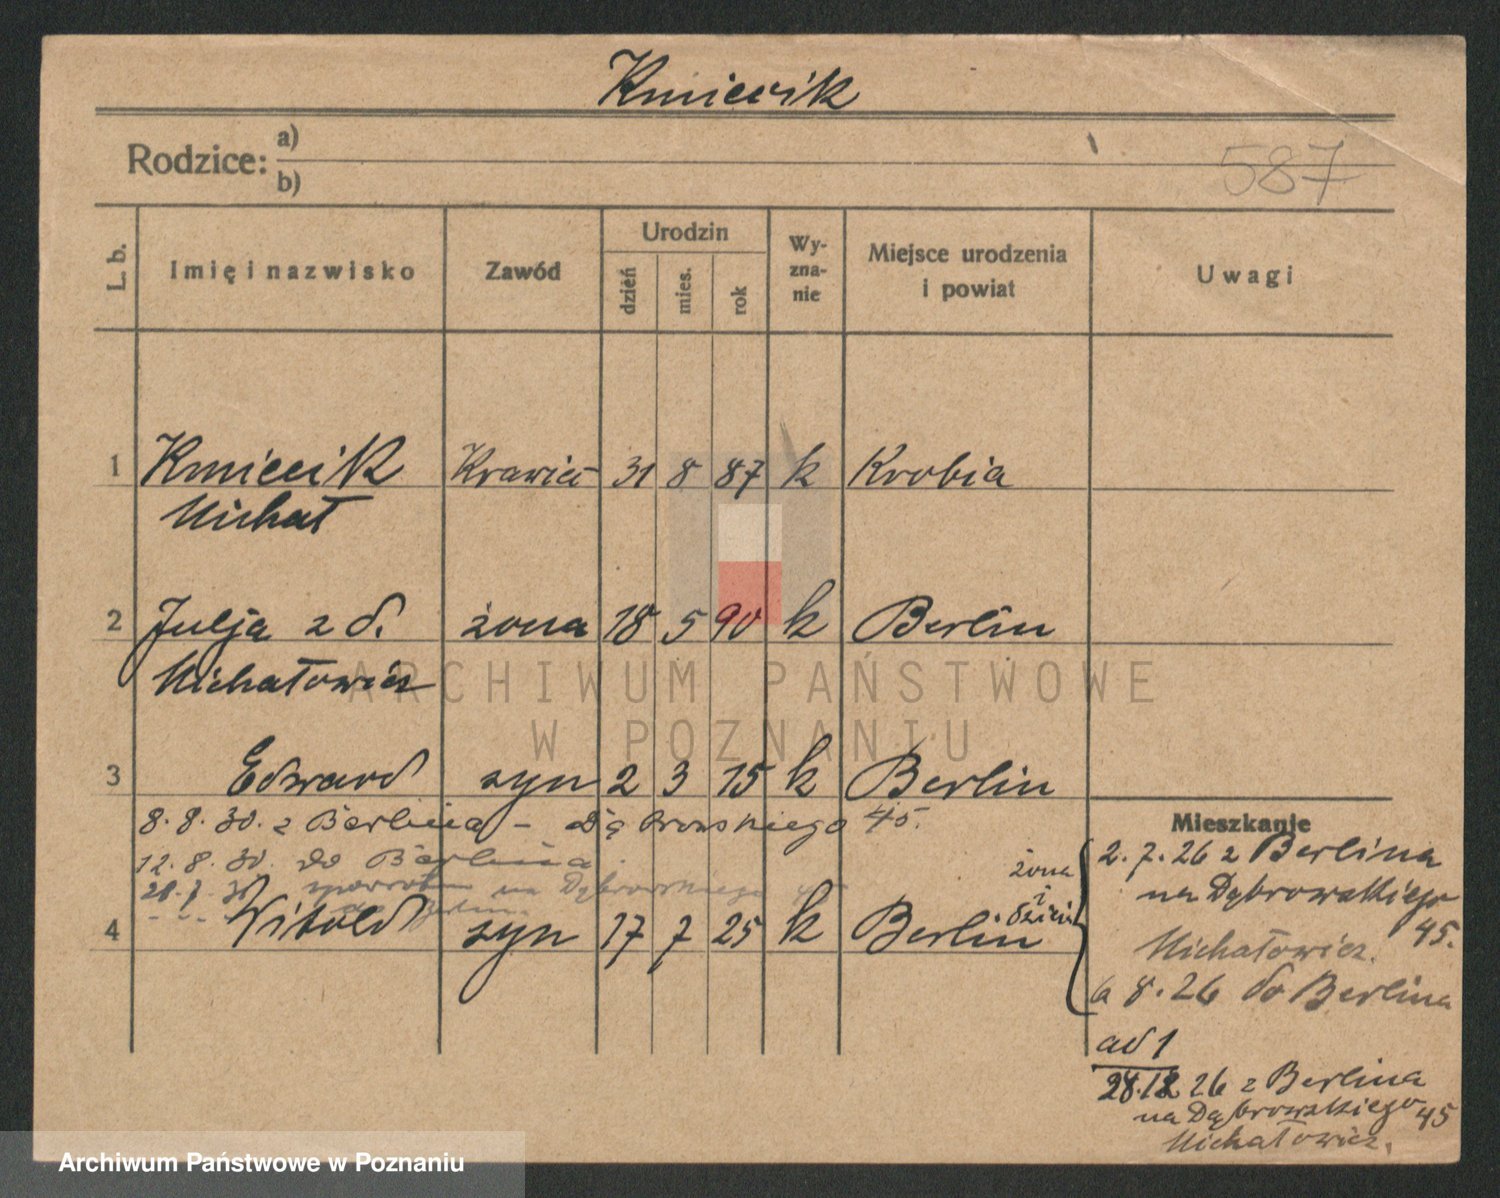 Kmiecik
Rodzice: a)
b)
587
L. b. Imię i nazwisko Zawód Urodzin dzień mies. rok Wy-zna-nie Miejsce urodzenia i powiat Uwagi
1 Kmiecik Krawiec 31 8 87 k Krobia
Michał
2 Julja z d. żona 18 5 90 k Berlin
Michałowicz
ARCHIWUM PAŃSTWOWE
W POZNANIU
3 Edward syn 2 3 15 k Berlin
8.8.30. z Berlina - Dąbrowskiego 45.
12.8.30. do Berlina.
na Dąbrowskiego 45
4 Witold syn 17 7 25 k Berlin
Mieszkanie
żona i dzieci
2.7.26 z Berlina
na Dąbrowskiego
45.
Michałowicz.
6 8.26 do Berlina
ad 1
28.12 26 z Berlina
na Dąbrowskiego 45
Michałowicz.
Archiwum Państwowe w Poznaniu